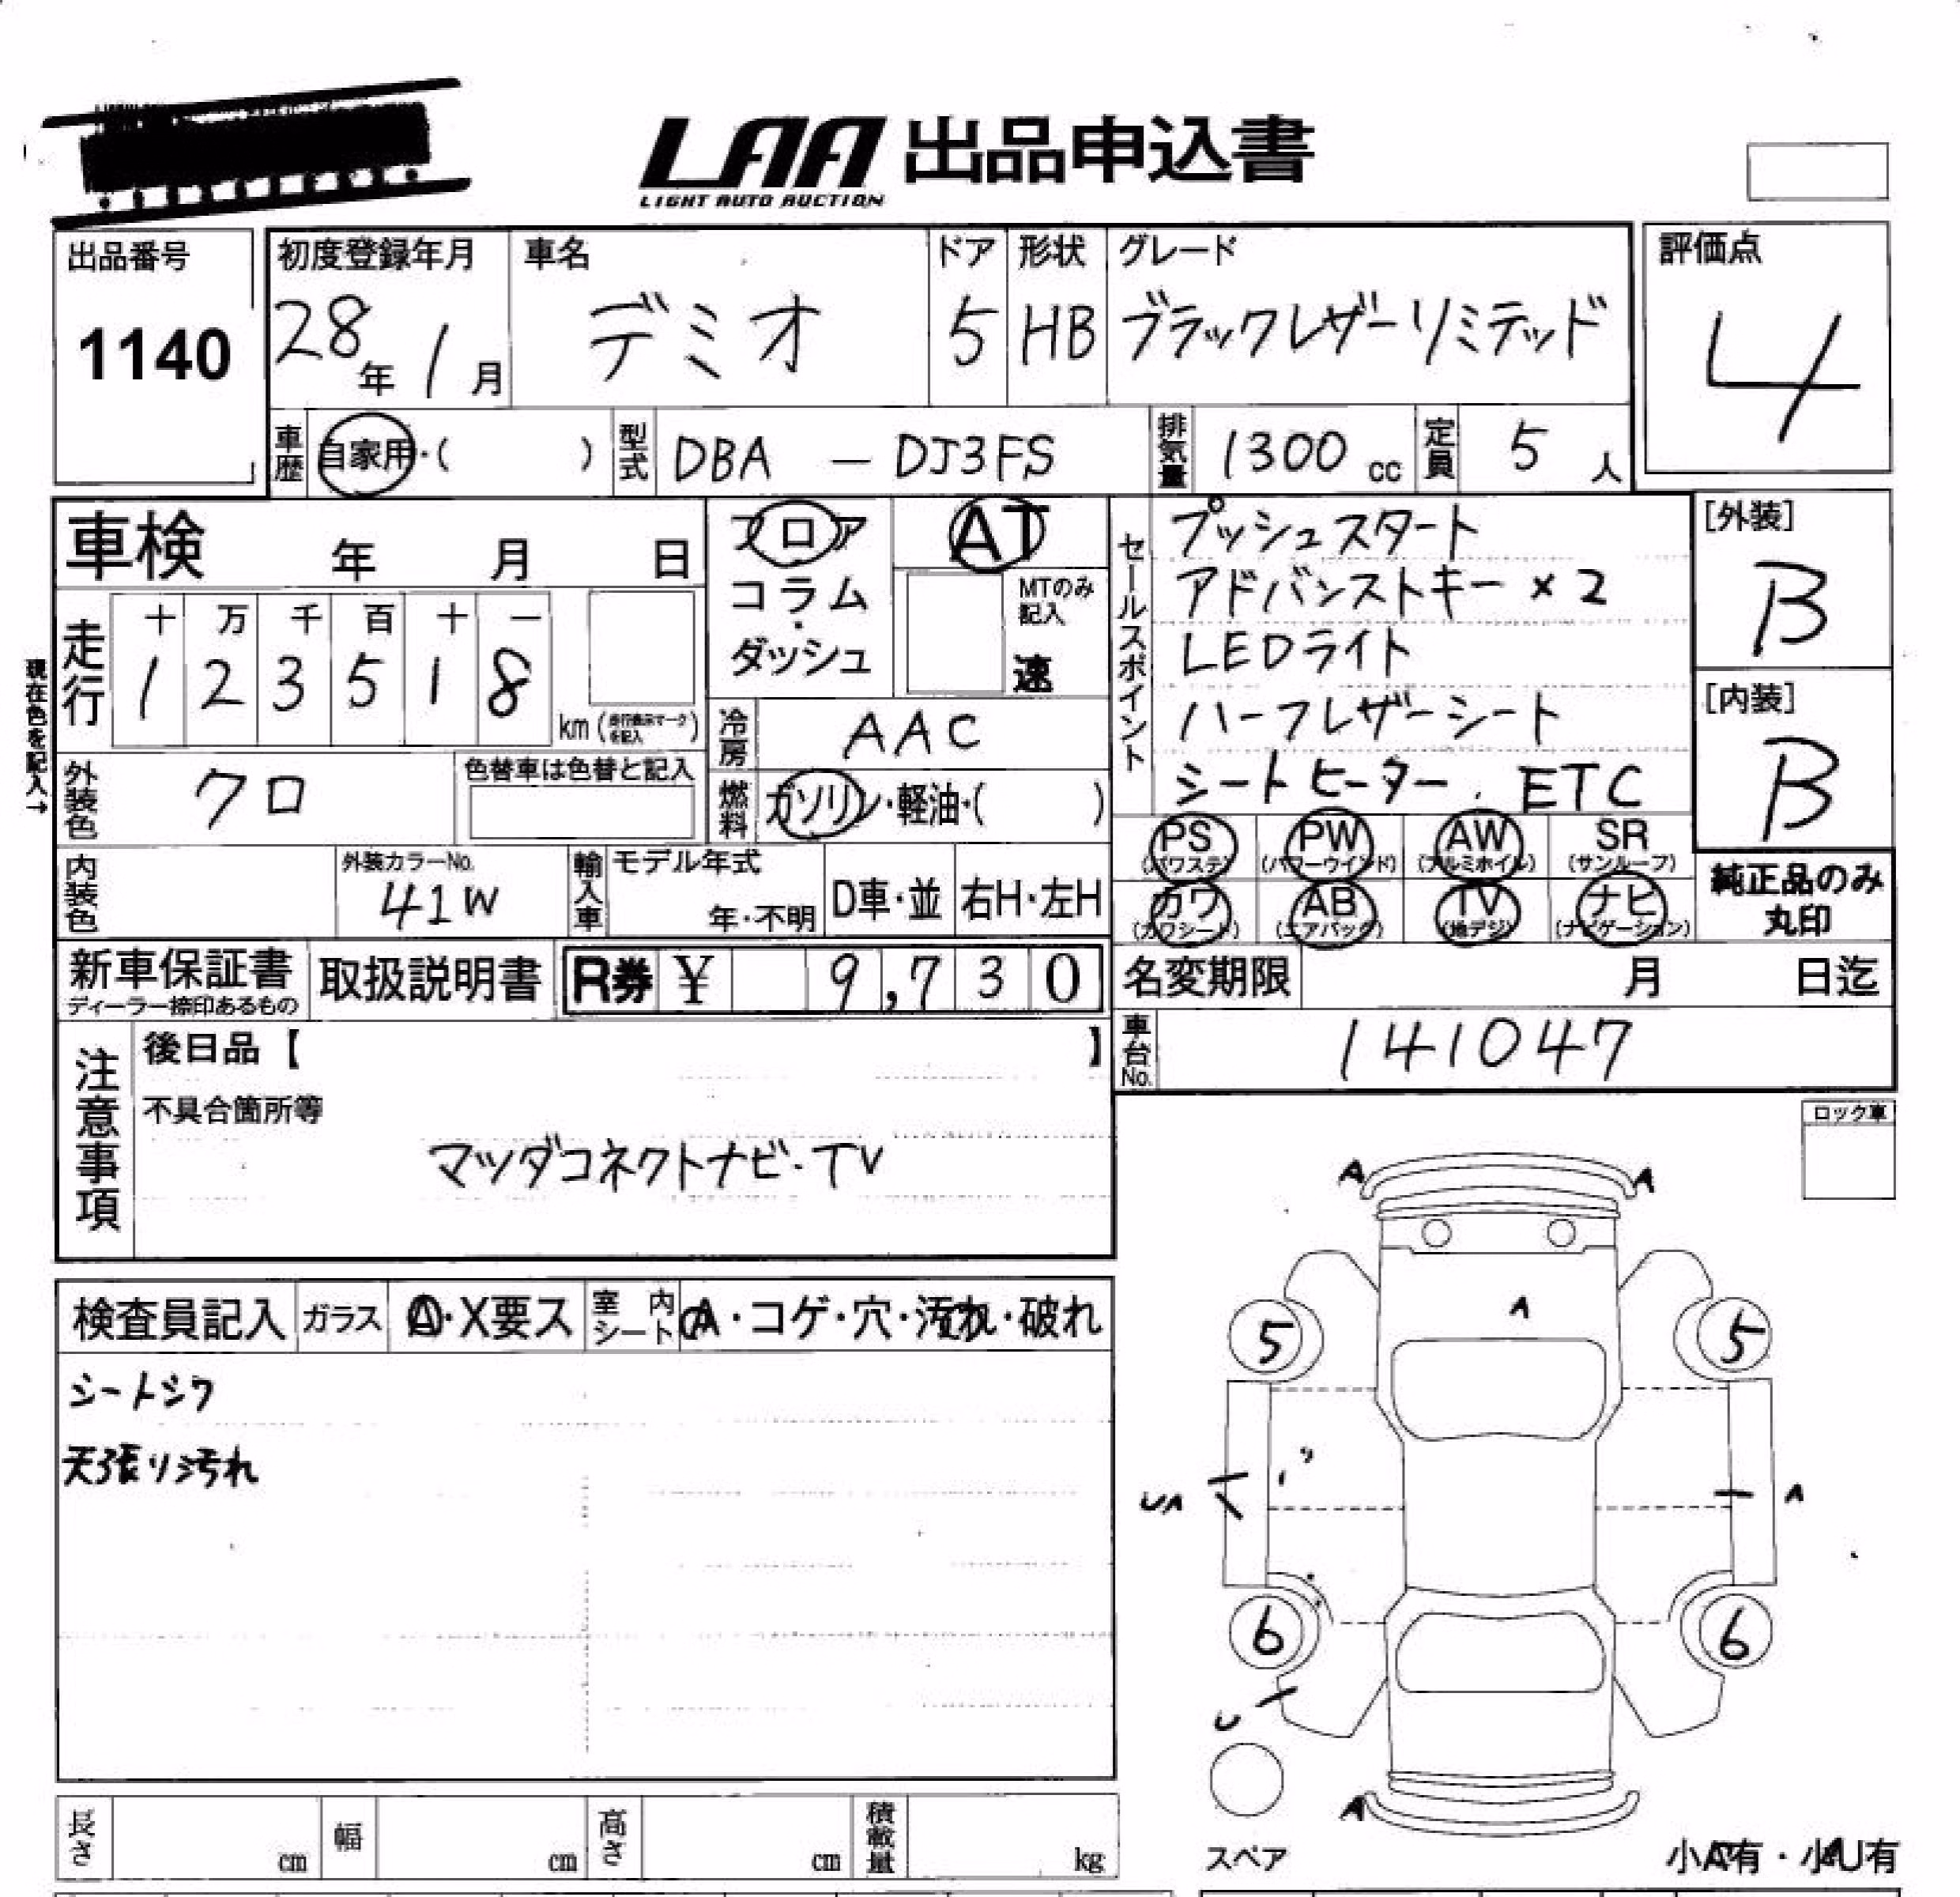 LAA 出品申込書
LIGHT AUTO AUCTION
出品番号
1140
初度登録年月
28年1月
車名
デミオ
ドア
5
形状
HB
グレード
ブラックレザーリミテッド
評価点
4
車歴
自家用・( )
型式
DBA － DJ3FS
排気量
1300 cc
定員
5 人
車検 年 月 日
フロア
コラム
・
ダッシュ
AT
MTのみ
記入
速
セールスポイント
プッシュスタート
アドバンストキー×2
LEDライト
ハーフレザーシート
シートヒーター. ETC
[外装]
B
[内装]
B
現在色を記入→
走行
十 万 千 百 十 一
1 2 3 5 1 8
km (走行表示マークを記入)
冷房
AAC
燃料
ガソリン・軽油・( )
外装色
クロ
色替車は色替と記入
PS
(パワステ)
PW
(パワーウインド)
AW
(アルミホイル)
SR
(サンルーフ)
カワ
(カワシート)
AB
(エアバック)
TV
(地デジ)
ナビ
(ナビゲーション)
純正品のみ
丸印
内装色
外装カラーNo.
41W
輸入車
モデル年式
年・不明
D車・並
右H・左H
新車保証書
ディーラー捺印あるもの
取扱説明書
R券 ¥ 9,730
名変期限 月 日迄
車台No.
141047
注意事項
後日品【 】
不具合箇所等
マツダコネクトナビ・TV
ロック車
検査員記入
ガラス
A・X要ス
室内シート
A・コゲ・穴・汚れ・破れ
シートシワ
天張り汚れ
A A
A
5 5
UA A
6 6
U
A
スペア
小A有・小U有
長さ cm
幅 cm
高さ cm
積載量 kg